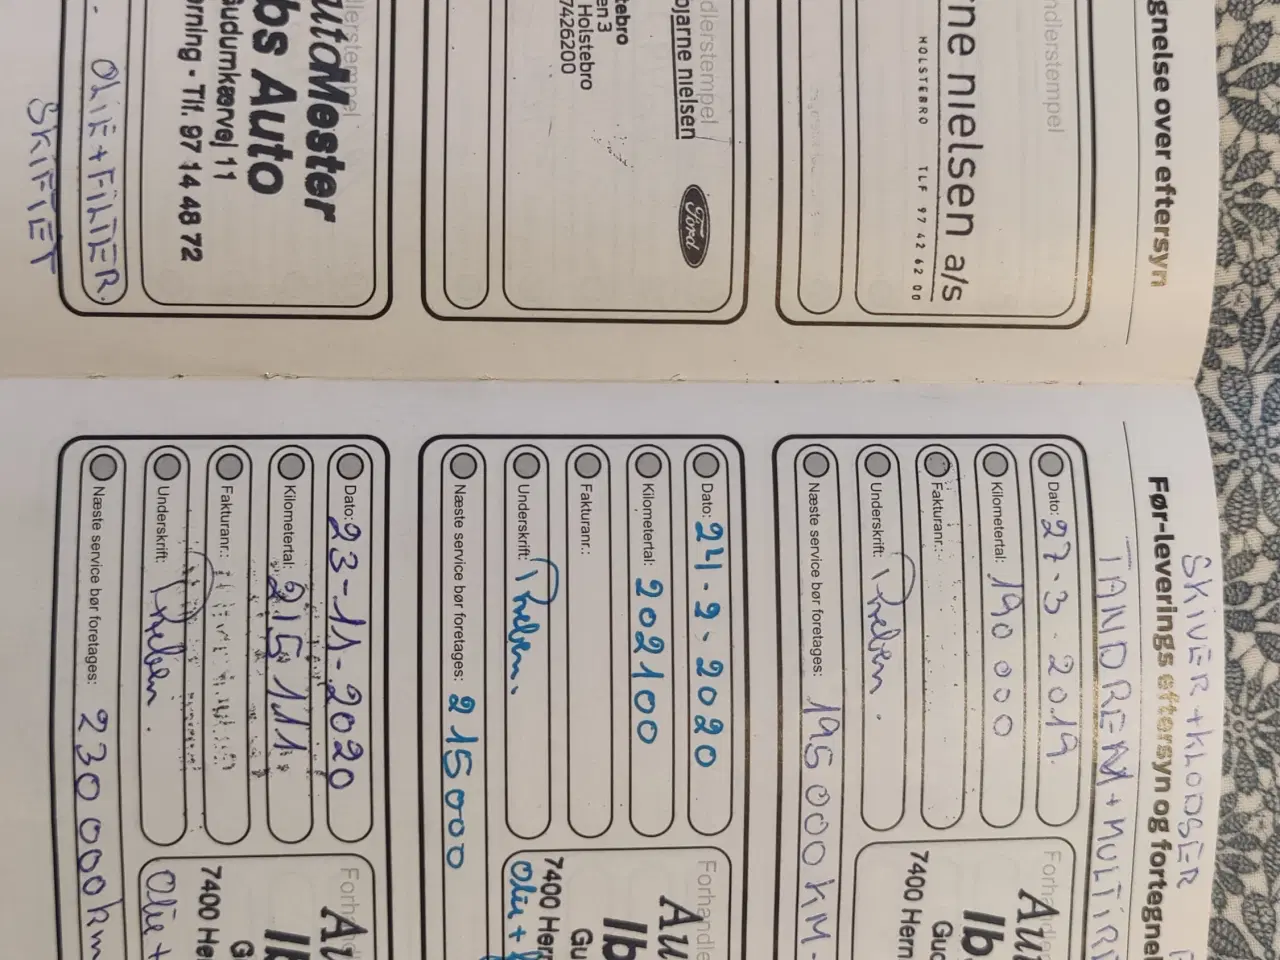 gnelse over eftersyn
ndlerstempel
rne nielsen a/s
HOLSTEBRO TLF 97 42 62 00
dlerstempel
bjarne nielsen
Ford
tebro
en 3
Holstebro
7426200
llerstempel
utoMester
bs Auto
Gudumkærvej 11
rning - Tlf. 97 14 48 72
OLIE + FILTER.
SKIFTET
SKIVER + KLODSER
Før-leverings eftersyn og fortegnel
TANDREM + MULTIR
Dato: 27-3-2019.
Kilometertal: 190 000
Fakturanr.:
Underskrift: Preben.
Næste service bør foretages: 195000 KM-
Forha
Au
Ib
Gud
7400 Hern
Dato: 24-2-2020
Kilometertal: 202100
Fakturanr.:
Underskrift: Preben.
Næste service bør foretages: 215000
Forhandle
Au
Ib
Gu
7400 Hern
Olie +
Dato: 23-11-2020
Kilometertal: 215 111
Fakturanr.:
Underskrift: Preben.
Næste service bør foretages: 230 000 km
Forhandl
Au
Ib
G
7400 He
Olie +